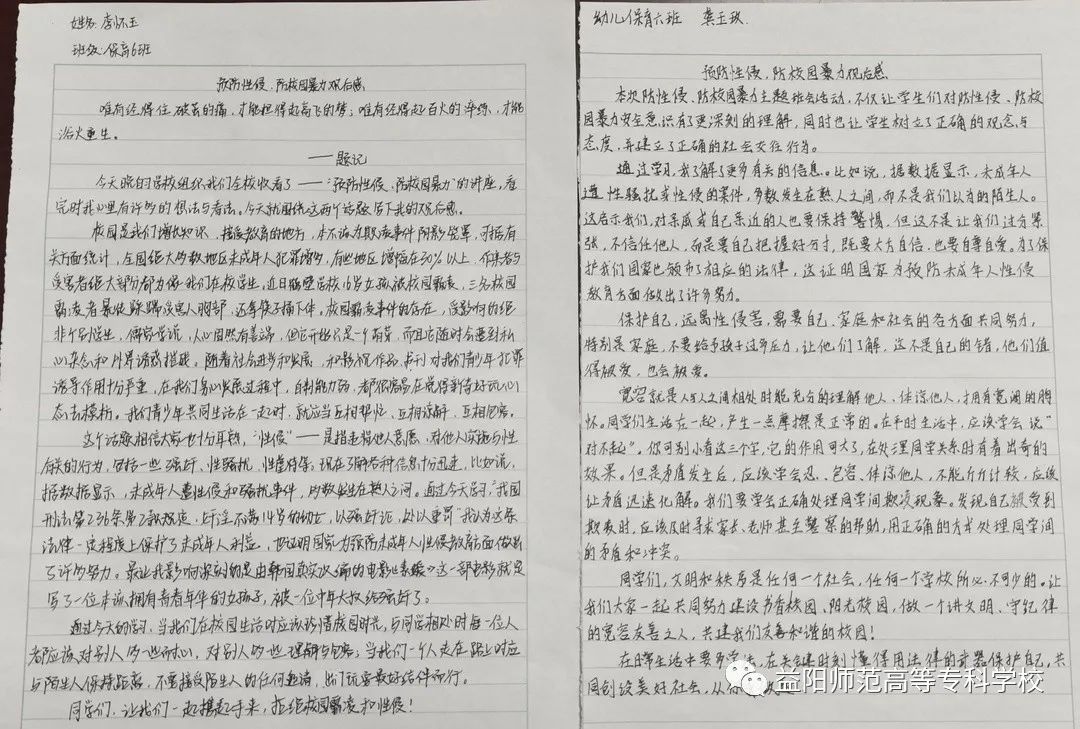 姓名:李怀玉
班级:保育6班
预防性侵、防校园暴力观后感
唯有经得住破茧的痛,才能把得起高飞的梦;唯有经得起百火的淬炼,才能
浴火重生。
——题记
今天晚的学校组织我们全校收看了——"预防性侵、防校园暴力"的讲座,看
完时我心里有许多的想法与看法。今天就围绕这两个话题写下我的观后感。
校园是我们增长知识、接受教育的地方,本不该为欺凌事件阴影笼罩,可据有
关方面统计,全国绝大多数地区未成年人犯罪增多,有些地区增幅在50%以上,作案者与
受害者绝大部分都为像我们在校学生。近日 学校16岁女孩被校园霸凌,三名校园
霸凌者暴 踩踹受害人胸部,还拿筷子捅下体。校园霸凌事件的存在,受影响的绝
非个别学生,儒家学说,人心固然有善端,但它开始只是一个萌芽,而且它随时会遭到私
心杂念和外界诱惑摧残。随着社会进步和发展,和影视作品、书刊对我们青少年犯罪
诱导作用十分严重,在我们身心发展过程中,自制能力弱,都很容易在觉得新奇好玩心
态去模仿。我们青少年共同生活在一起时,就应当互相帮忙、互相谅解、互相包容。
这个话题相信大家也十分耳熟,"性侵"——是指违揹他人意愿,对他人实施与性
有关的行为,包括一些强奸、性骚扰、性虐待等,现在了解各种信息十分迅速,比如说,
据数据显示,未成年人遭性侵和骚扰事件,多数发生在熟人之间。通过今天学习"我国
刑法第236条第2款规定:奸淫不满14岁的幼女,以强奸论,处以重罚"我认为这条
法律一定程度上保护了未成年人利益,也证明国家为预防未成年人性侵教育方面做出
了许多努力。最让我影响深刻的是由韩国真实改编的电影《素媛》这一部电影就是
写了一位本该拥有青春年华的女孩子,被一位中年大叔给强奸了。
通过今天的学习,当我们在校园生活时应该珍惜校园时光,与同学相处时每一位人
都应该对别人多一些耐心,对别人多一些理解与包容;当我们一个人走在路上时应
与陌生人保持距离,不要接受陌生人的任何邀请,出门玩耍最好结伴而行。
同学们,让我们一起携起手来,拒绝校园霸凌和性侵!
幼儿保育六班 龚玉玫
预防性侵,防校园暴力观后感
本次防性侵、防校园暴力主题班会活动,不仅让学生们对防性侵、防校
园暴力安全意识有了更深刻的理解,同时也让学生树立了正确的观念与
态度,并建立了正确的社会交往行为。
通过学习,我了解了更多有关的信息。比如说,据数据显示,未成年人
遭性骚扰或性侵的案件,多数发生在熟人之间,而不是我们以为的陌生人。
这启示我们,对亲戚或自己亲近的人也要保持警惕,但这不是让我们过分紧
张,不信任他人,而是要自己把握好分寸,既要大方自信,也要自尊自爱。为了保
护我们国家也颁布了相应的法律,这证明国家为预防未成年人性侵
教育方面做出了许多努力。
保护自己,远离性侵害,需要自己、家庭和社会的各方面共同努力,
特别是家庭,不要给予孩子过多压力,让他们了解,这不是自己的错,他们值
得被爱,也会被爱。
宽容就是人与人之间相处时能充分的理解他人、体谅他人,拥有宽阔的胸
怀。同学们生活在一起,产生一点摩擦是正常的。在平时生活中,应该学会说"
对不起"。你可别小看这三个字,它的作用可大了,在处理同学关系时有着出奇的
效果。但是矛盾发生后,应该学会忍、包容、体谅他人,不能斤斤计较,应该
让矛盾迅速化解。我们要学会正确处理同学间欺凌现象。发现自己被受到
欺凌时,应该及时寻求家长、老师甚至警察的帮助,用正确的方式处理同学间
的矛盾和冲突。
同学们,文明和秩序是任何一个社会,任何一个学校所必不可少的。让
我们大家一起共同努力建设书香校园、阳光校园,做一个讲文明、守纪律
的宽容友善之人,共建我们友善和谐的校园!
在日常生活中要多学法,在关键时刻懂得用法律的武器保护自己,共
同创绘美好社会,从你我做起
益阳师范高等专科学校